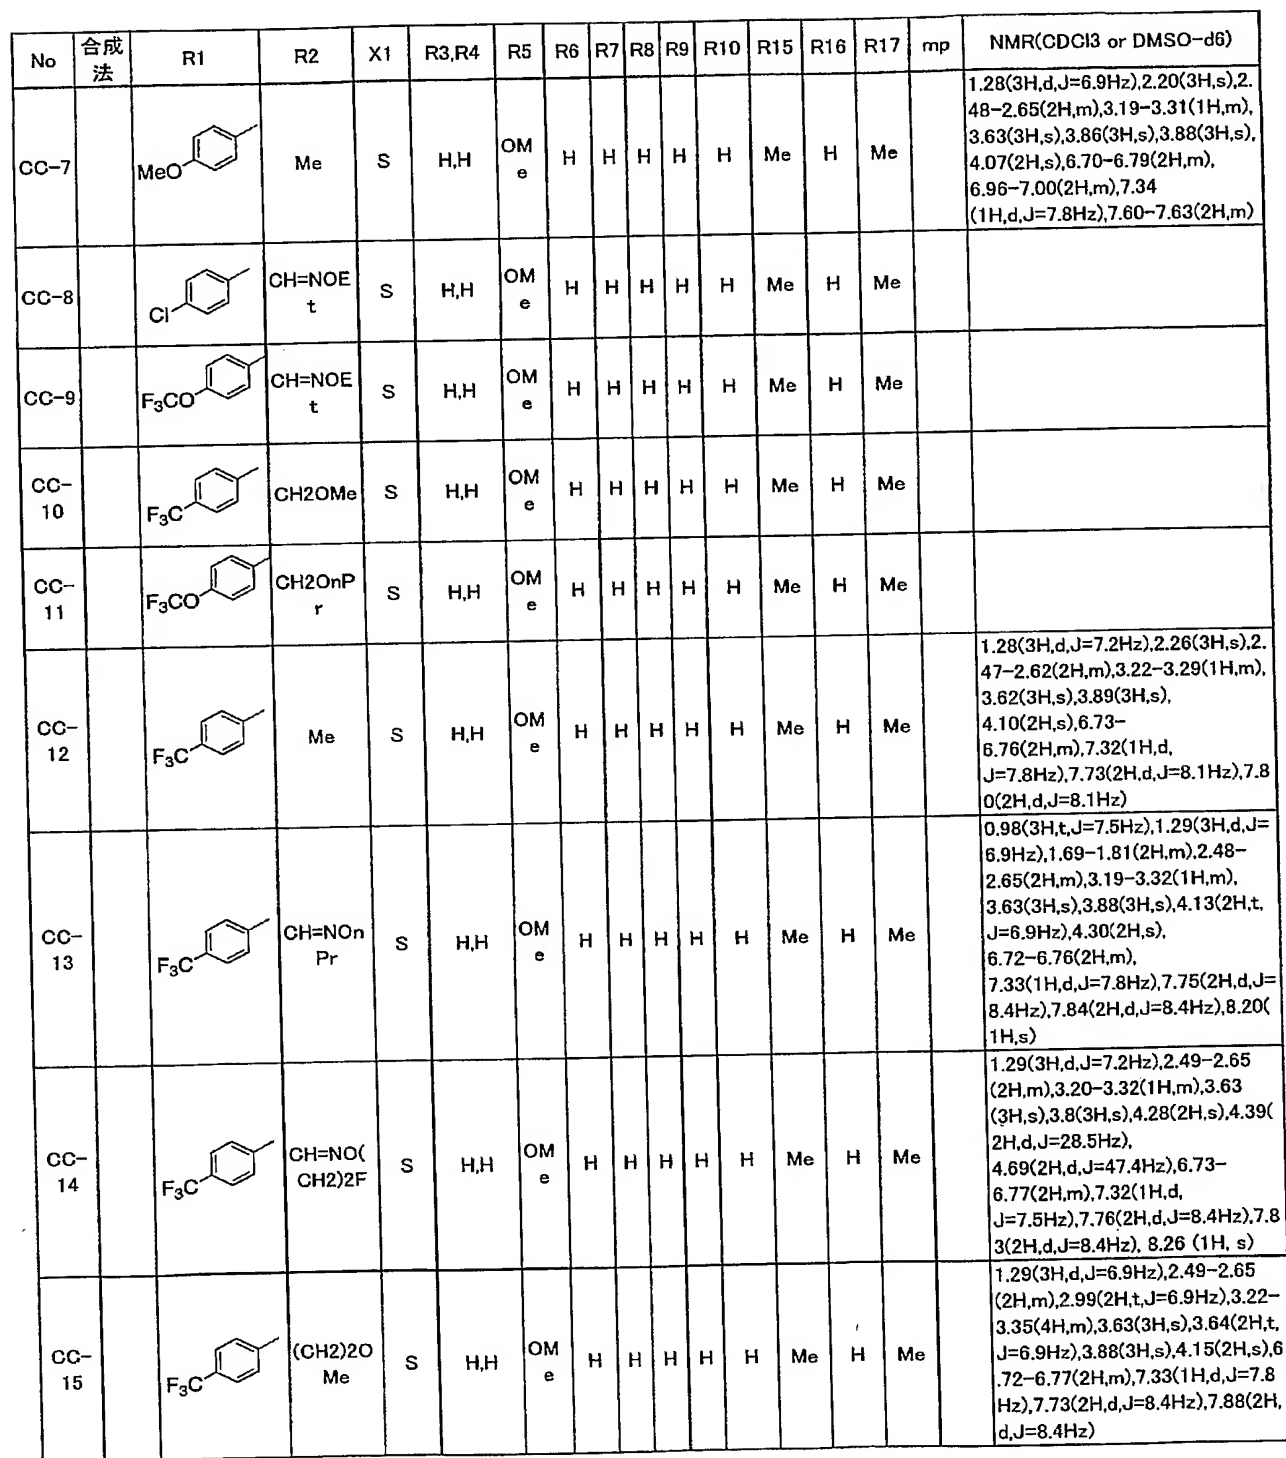 No 合成 R1 R2 X1 R3,R4 R5 R6 R7 R8 R9 R10 R15 R16 R17 mp NMR(CDCl3 or DMSO-d6)
法
CC-7 MeO Me S H,H OM H H H H H Me H Me 1.28(3H,d,J=6.9Hz),2.20(3H,s),2.
e 48-2.65(2H,m),3.19-3.31(1H,m),
3.63(3H,s),3.86(3H,s),3.88(3H,s),
4.07(2H,s),6.70-6.79(2H,m),
6.96-7.00(2H,m),7.34
(1H,d,J=7.8Hz),7.60-7.63(2H,m)
CC-8 Cl CH=NOE S H,H OM H H H H H Me H Me
t e
CC-9 F3CO CH=NOE S H,H OM H H H H H Me H Me
t e
CC- F3C CH2OMe S H,H OM H H H H H Me H Me
10 e
CC- F3CO CH2OnP S H,H OM H H H H H Me H Me
11 r e
CC- F3C Me S H,H OM H H H H H Me H Me 1.28(3H,d,J=7.2Hz),2.26(3H,s),2.
12 e 47-2.62(2H,m),3.22-3.29(1H,m),
3.62(3H,s),3.89(3H,s),
4.10(2H,s),6.73-
6.76(2H,m),7.32(1H,d,
J=7.8Hz),7.73(2H,d,J=8.1Hz),7.8
0(2H,d,J=8.1Hz)
CC- F3C CH=NOn S H,H OM H H H H H Me H Me 0.98(3H,t,J=7.5Hz),1.29(3H,d,J=
13 Pr e 6.9Hz),1.69-1.81(2H,m),2.48-
2.65(2H,m),3.19-3.32(1H,m),
3.63(3H,s),3.88(3H,s),4.13(2H,t,
J=6.9Hz),4.30(2H,s),
6.72-6.76(2H,m),
7.33(1H,d,J=7.8Hz),7.75(2H,d,J=
8.4Hz),7.84(2H,d,J=8.4Hz),8.20(
1H,s)
CC- F3C CH=NO( S H,H OM H H H H H Me H Me 1.29(3H,d,J=7.2Hz),2.49-2.65
14 CH2)2F e (2H,m),3.20-3.32(1H,m),3.63
(3H,s),3.8(3H,s),4.28(2H,s),4.39(
2H,d,J=28.5Hz),
4.69(2H,d,J=47.4Hz),6.73-
6.77(2H,m),7.32(1H,d,
J=7.5Hz),7.76(2H,d,J=8.4Hz),7.8
3(2H,d,J=8.4Hz), 8.26 (1H, s)
CC- F3C (CH2)2O S H,H OM H H H H H Me H Me 1.29(3H,d,J=6.9Hz),2.49-2.65
15 Me e (2H,m),2.99(2H,t,J=6.9Hz),3.22-
3.35(4H,m),3.63(3H,s),3.64(2H,t,
J=6.9Hz),3.88(3H,s),4.15(2H,s),6
.72-6.77(2H,m),7.33(1H,d,J=7.8
Hz),7.73(2H,d,J=8.4Hz),7.88(2H,
d,J=8.4Hz)